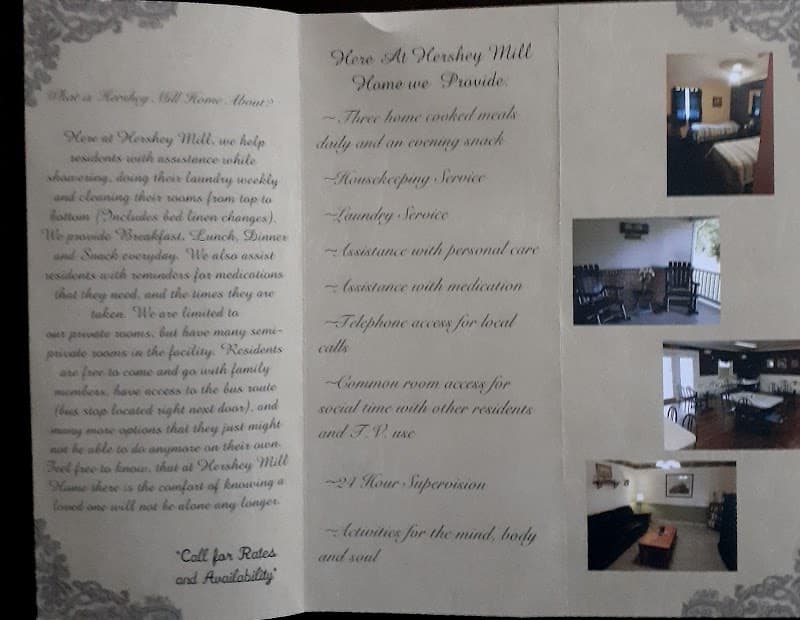 What is Hershey Mill Home About?
Here at Hershey Mill, we help
residents with assistance while
showering, doing their laundry weekly
and cleaning their rooms from top to
bottom (Includes bed linen changes).
We provide Breakfast, Lunch, Dinner
and Snack everyday. We also assist
residents with reminders for medications
that they need, and the times they are
taken. We are limited to
our private rooms, but have many semi-
private rooms in the facility. Residents
are free to come and go with family
members, have access to the bus route
(bus stop located right next door), and
many more options that they just might
not be able to do anymore on their own.
Feel free to know, that at Hershey Mill
Home there is the comfort of knowing a
loved one will not be alone any longer.
"Call for Rates
and Availability"
Here At Hershey Mill
Home we Provide:
~Three home cooked meals
daily and an evening snack
~Housekeeping Service
~Laundry Service
~Assistance with personal care
~Assistance with medication
~Telephone access for local
calls
~Common room access for
social time with other residents
and T.V. use
~24 Hour Supervision
~Activities for the mind, body
and soul